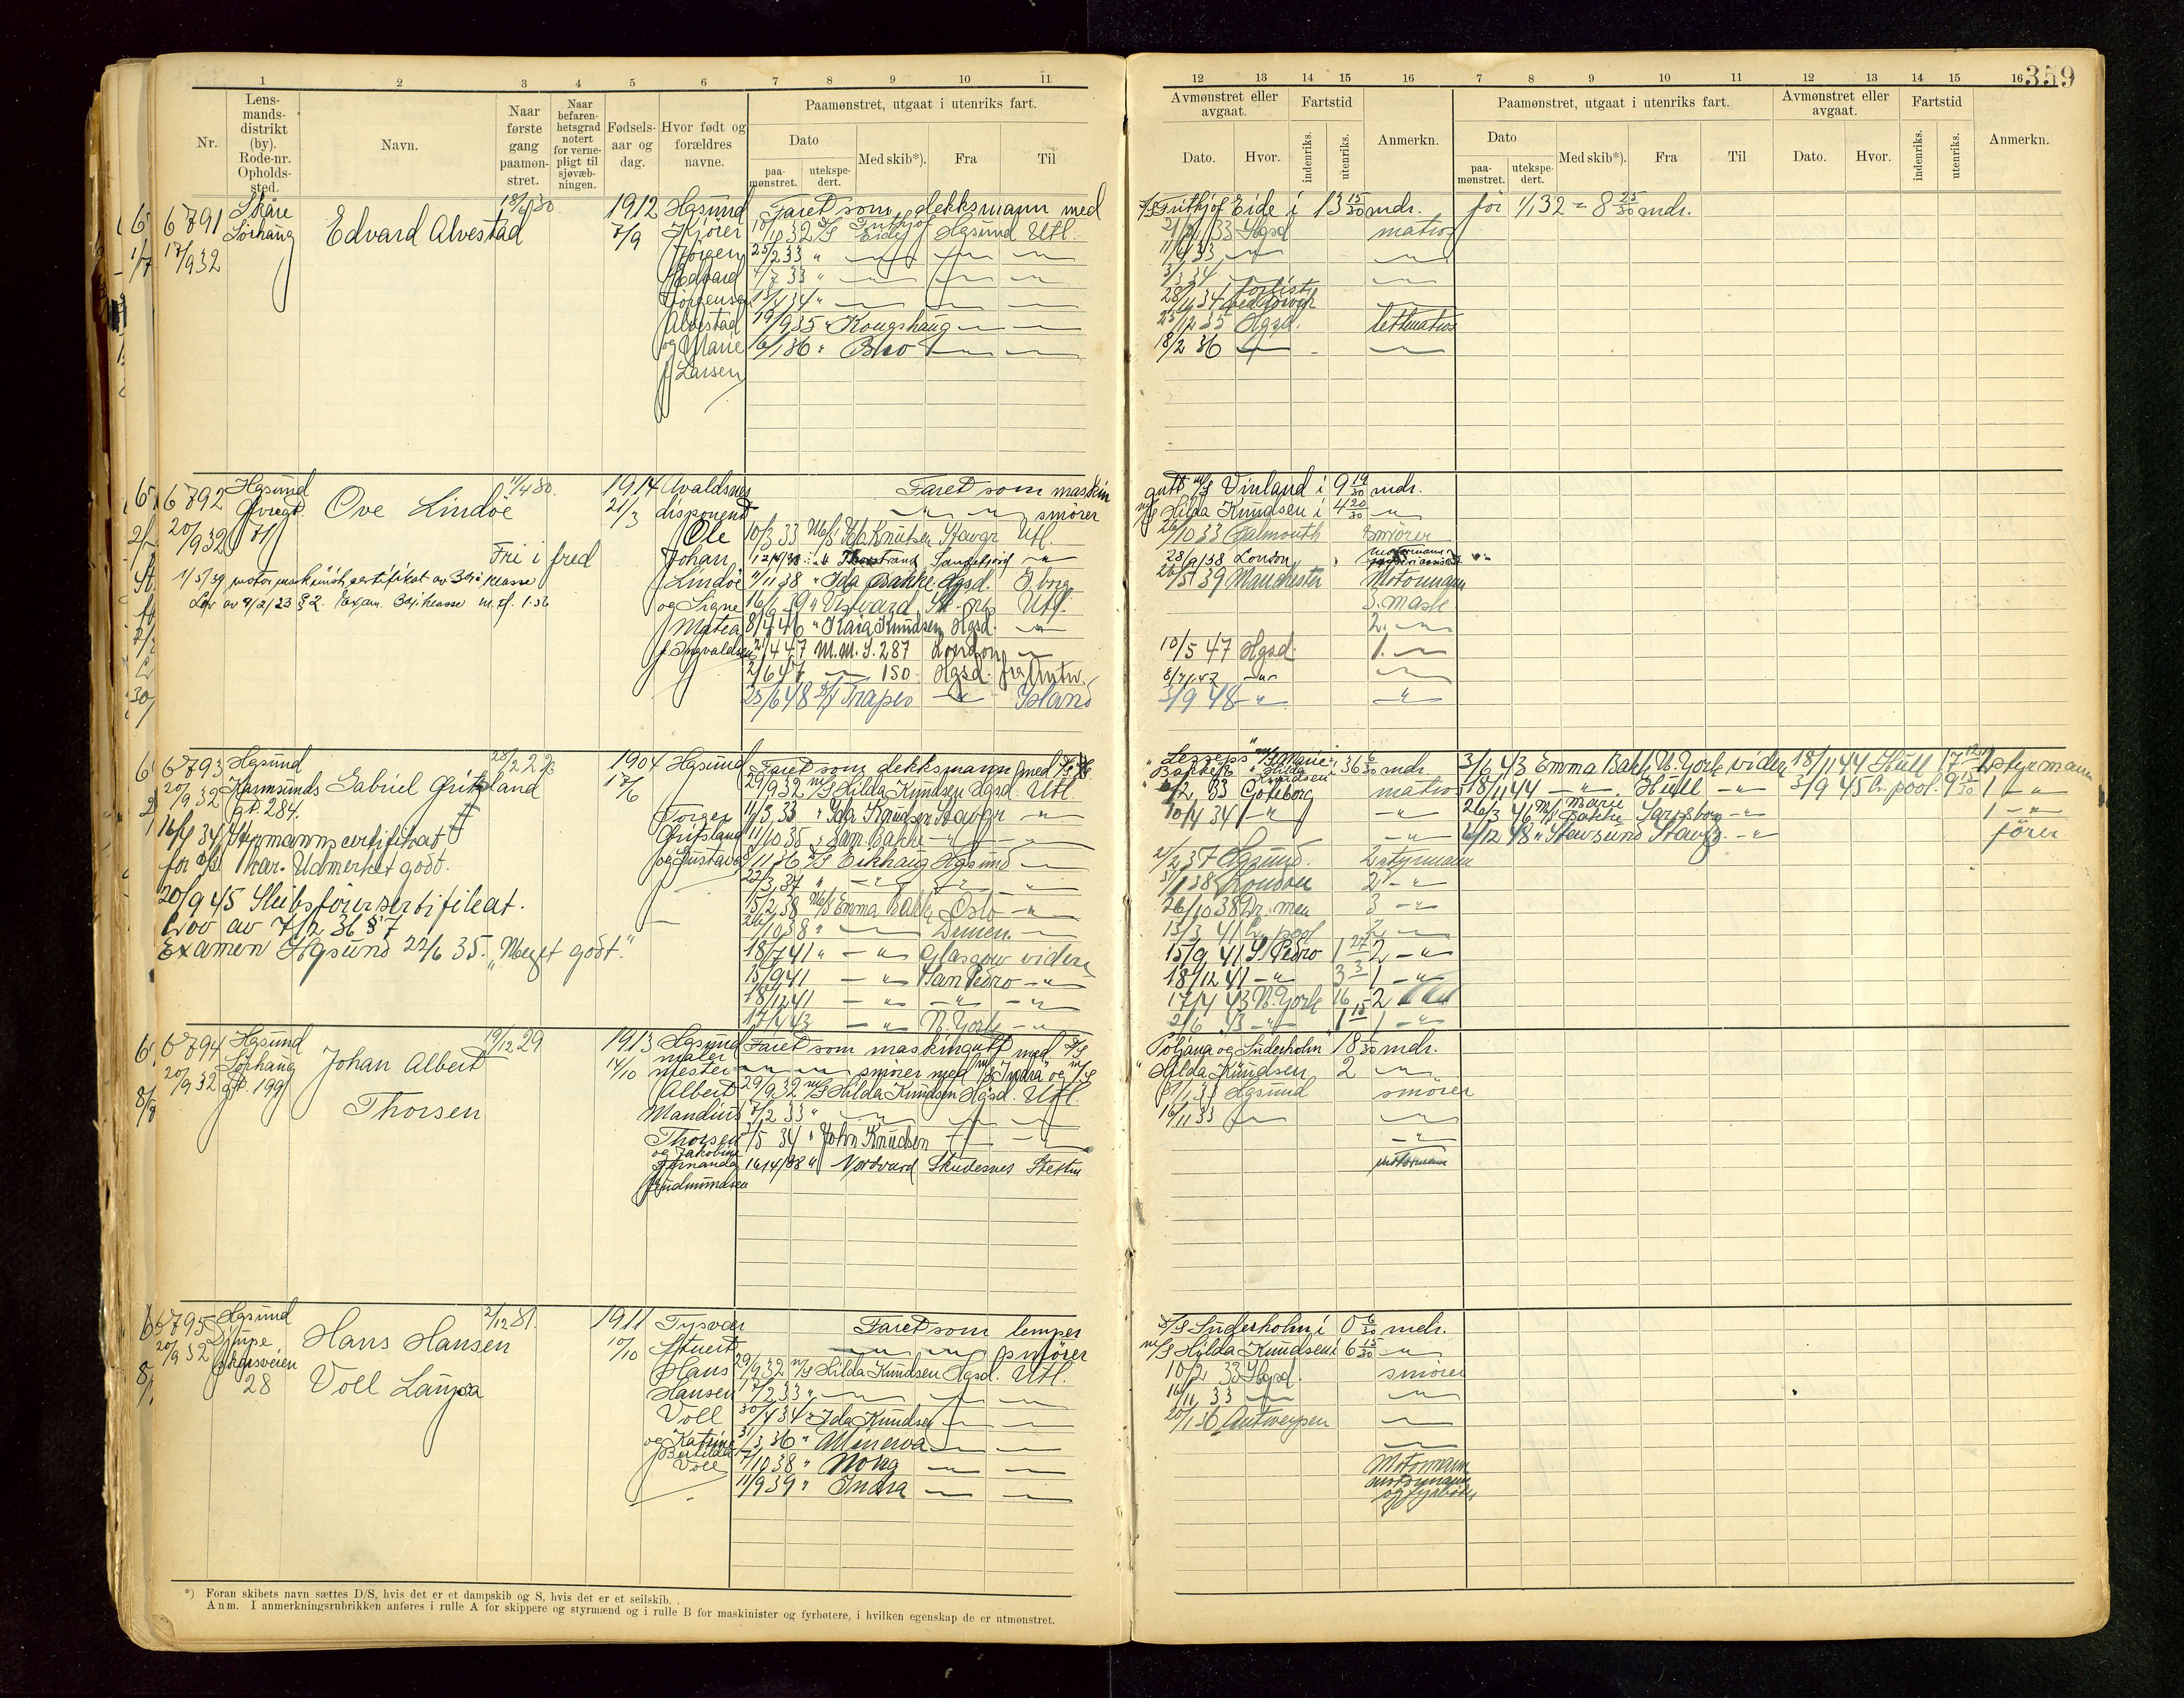 359
1 2 3 4 5 6 7 8 9 10 11
12 13 14 15 16 7 8 9 10 11 12 13 14 15 16
Nr.
Lens-
mands-
distrikt
(by).
Rode-nr.
Opholds-
sted.
Navn.
Naar
første
gang
paamøn-
stret.
Naar
befaren-
hetsgrad
notert
for verne-
pligt til
sjøvæb-
ningen.
Fødsels-
aar og
dag.
Hvor født og
forældres
navne.
Paamønstret, utgaat i utenriks fart.
Dato
paa-
mønstret.
utekspe-
dert.
Med skib*).
Fra
Til
Avmønstret eller
avgaat.
Dato.
Hvor.
Fartstid
indenriks.
utenriks.
Anmerkn.
Paamønstret, utgaat i utenriks fart.
Dato
paa-
mønstret.
utekspe-
dert.
Med skib*).
Fra
Til
Avmønstret eller
avgaat.
Dato.
Hvor.
Fartstid
indenriks.
utenriks.
Anmerkn.
6791 Skåre
Sørhaug
17/9 32
Edvard Alvestad
18/4 30
1912
7/9
Hgsund
Kjører
Jørgen
Edvard
Jørgensen
Alvestad
og Marie
f. Larsen
Faret som dekksmann med
10/10 32 D/S Frithjof Eide Hgsund Utl.
25/2 33 " — — —
4/7 33 " — — —
13/4 34 " — — —
19/9 35 " Kongshaug — —
16/1 36 " Bro — —
D/S Frithjof Eide i 13 15/30 mdr. før 1/1 32 = 8 25/30 mdr.
21/2 33 Hgsd matros
11/6 33 — —
3/3 34
28/11 34 forlist
23/12 35 Hgsd. lettmatros
18/2 36 — —
6792 Hgsund
20/9 32
Ove Lindøe
11/4 30.
Fri i fred
1/5 39 motormaskinistsertifikat av 3die klasse
Lov av 9/2 23 § 2. Exam. 3die klasse
1914
21/3
Avaldsnes
disponent
Ole
Johan
Lindøe
og Signe
Matea
f. Ingvaldsen
Faret som maskin
— " — " smører
10/3 33 M/S Ida Knutsen Stavgr Utl.
Thorstrand Sandefjord — " —
11/11 38 " Ida Bakke Hgsd.
16/6 39 " Vestvard Utl.
8/4 46 " Kaia Knudsen Hgsd. — " —
2/4 47 M.M.S. 287 London —
2/6 47 — 150 Hgsd. fra Antw.
25/6 48 Trapes — " — Island
gutt M/S Vinland i 9 19/30 mdr.
M/S Hilda Knudsen i 4 20/30 — " —
26/10 33 Falmouth Smører
28/9 38 London
26/5 39 Manchester Motormann
3. mask
2. — " —
10/5 47 Hgsd. 1. — " —
— " —
3/9 48 — " — — " —
6793 Hgsund
20/9 32 Karmsunds
gt. 284.
Gabriel Gritsland
28/2 23
16/4 34 Styrmannssertifikat
for Kar. Udmerket godt.
20/9 45 Skibsførersertifikat.
Lov av 7/2 36 § 7
Examen Hgsund 22/6 35. "Meget godt."
1904
17/6
Hgsund
Torger
Gritsland
og Gustava
Faret som dekksmann med
29/9 32 M/S Hilda Knudsen Hgsd. Utl.
11/3 33 " Ida Knudsen Stavgr — " —
11/10 35 " Sam. Bakke — " — —
9/11 36 D/S Eikhaug Hgsund —
22/3 37 " — " — — " — — " —
15/2 38 M/S Emma Bakke Oslo — " —
1/11 38 " — Drmen. —
18/7 41 " — " — Glasgow videre
15/9 41 — " — San Pedro — " —
18/12 41 — " — — " — — " —
17/4 43 — " — N. York — " —
"Lesseps" M/S Marie
Bakke & Hilda Knudsen i 36 6/30 mdr.
2/2 33 Göteborg matros
10/4 34 — " — — " —
— " —
2/2 37 Hgsund. 2. styrmann
31/1 38 London 2 — " —
26/10 38 Dr. men 3 — " —
13/3 41 L. pool 2 — " —
15/9 41 S. Pedro 1 27 2 — " —
18/12 41 — " — 3 3 1 — " —
17/4 43 N. York 16 2
2/6 43 — " — 1 15 1 — " —
3/6 43 Emma Bakke N. York videre 18/11 44 Hull 17 1. styrmann
18/11 44 — " — Hull — " — 3/9 45 L. pool. 9 15/30 1 — " —
26/3 46 M/S Marie Bakke Sarpsborg — " — 1 — " —
6/12 48 " Stavsund Stavgr. — " — fører
6794 Hgsund
20/9 32 Sørhaug
gt. 199
Johan Albert
Thorsen
19/12 29
1913
14/10
Hgsund
maler
mester
Albert
Mandius
Thorsen
og Jakobine
Fernanda
Gudmundsen
Faret som maskingutt med D/S
— " — " — smører med M/S "Indra" og M/S
29/9 32 M/S Hilda Knudsen Hgsd. Utl.
17/2 33 " — — —
1/5 34 " John Knudsen — —
16/4/38 " Nordvard Skudesnes Stettin
"Poljana og Süderholm" 18 mdr.
"Hilda Knudsen 2 — " —
Hgsund smører
16/11 33 — —
— " —
motormann
6795 Hgsund
20/9 32 Djupe
skarsveien
28
Hans Hansen
Voll Laupsa
2/12 31.
1911
10/10
Tysvær
Stuert
Hans
Hansen
Voll
og Katrine
Bertilda
Voll
Faret som lemper
— " — " — smører
29/9 32 M/S Hilda Knudsen Hgsd. Utl.
17/2 33 " — — —
30/4 34 " Ida Knudsen — —
31/3 36 " Minerva — —
7/10 38 " Norg — —
11/9 39 " Indra — —
D/S Süderholm i 0 6/30 mdr.
M/S Hilda Knudsen i 6 15/30 — " —
10/2 33 Hgsd. smører
16/11 33 — —
20/1 36 Antwerpen —
—
Motormann
motormann
og fyrbøter
*) Foran skibets navn sættes D/S, hvis det er et dampskib og S, hvis det er et seilskib.
Anm. I anmerkningsrubrikken anføres i rulle A for skippere og styrmænd og i rulle B for maskinister og fyrbøtere, i hvilken egenskap de er utmønstret.